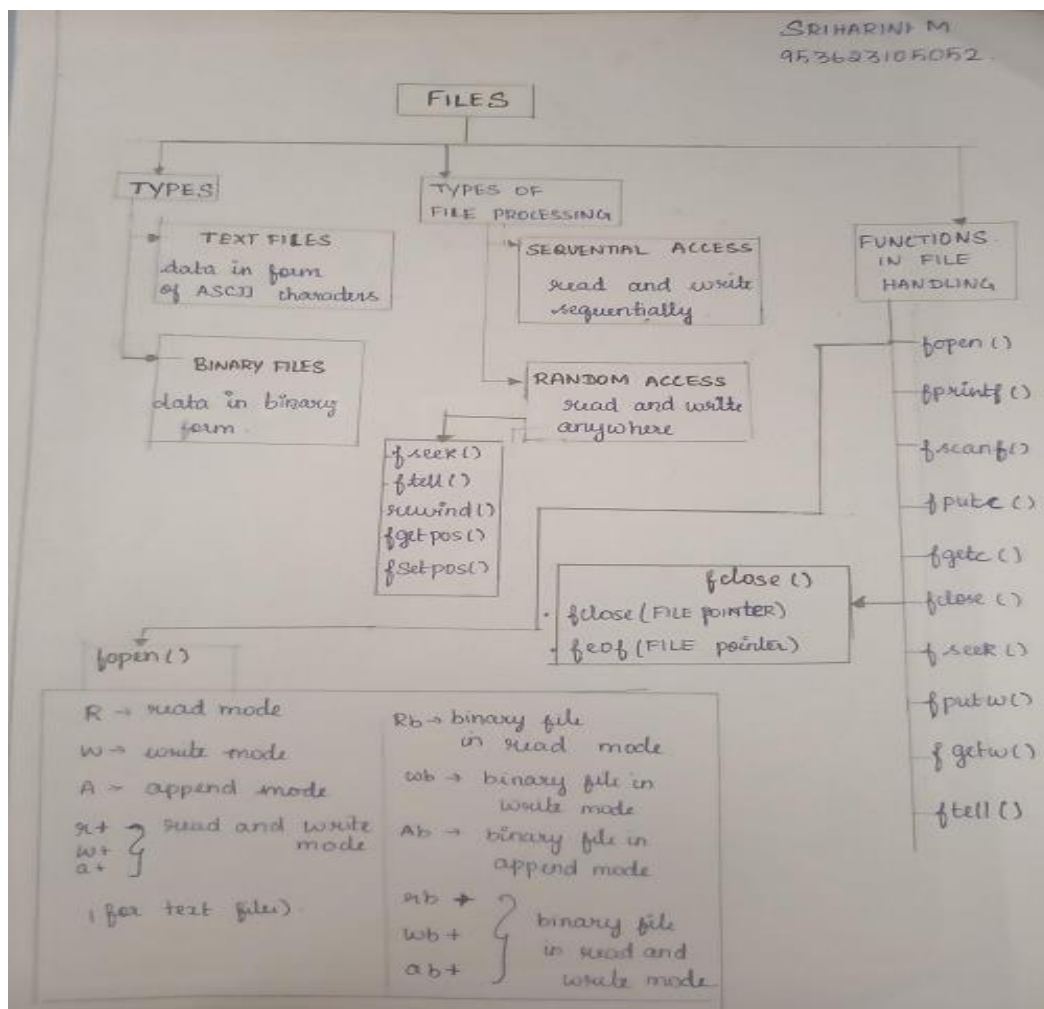 SRIHARINI M
953623105052.
FILES
TYPES
TEXT FILES
data in form
of ASCII characters
BINARY FILES
data in binary
form.
TYPES OF
FILE PROCESSING
SEQUENTIAL ACCESS
read and write
sequentially
RANDOM ACCESS
read and write
anywhere
fseek()
ftell()
rewind()
fgetpos()
fsetpos()
FUNCTIONS
IN FILE
HANDLING
fopen()
fprintf()
fscanf()
fputc()
fgetc()
fclose()
fseek()
fputw()
fgetw()
ftell()
fclose()
. fclose(FILE POINTER)
. feof(FILE pointer)
fopen()
R → read mode
W → write mode
A - append mode
r+
w+
a+
} read and write
mode
(for text files).
Rb → binary file
in read mode
wb → binary file in
write mode
Ab → binary file in
append mode
rb +
wb +
ab+
} binary file
in read and
write mode